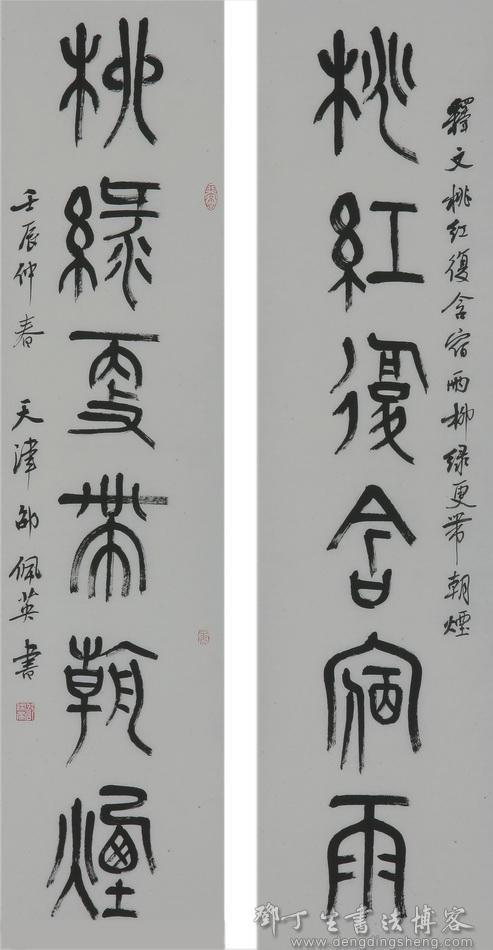 釋文桃红復含宿雨柳绿更带朝煙
桃红復含宿雨
柳緑更帶朝煙
壬辰仲春 天津邵佩英書
鄧丁生書法博客
www.dengdingsheng.com